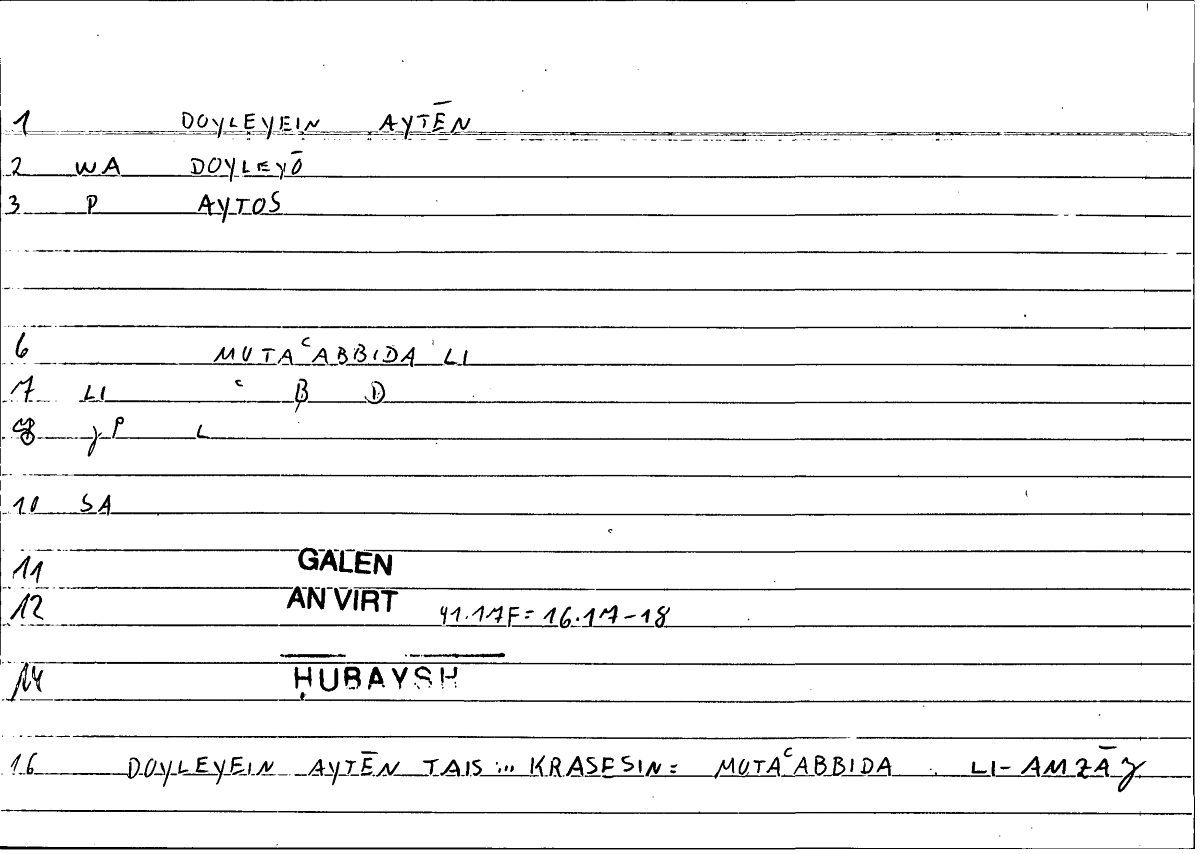 1 DOYLEYEIN AYTĒN
2 WA DOYLEYŌ
3 P AYTOS
6 MUTAᶜABBIDA LI
7 LI ᶜ B D
8 γP L
10 SA
11 GALEN
12 AN VIRT 41.17F= 16.17-18
14 ḤUBAYSH
16 DOYLEYEIN AYTĒN TAIS ... KRASESIN= MUTAᶜABBIDA LI-AMZĀγ